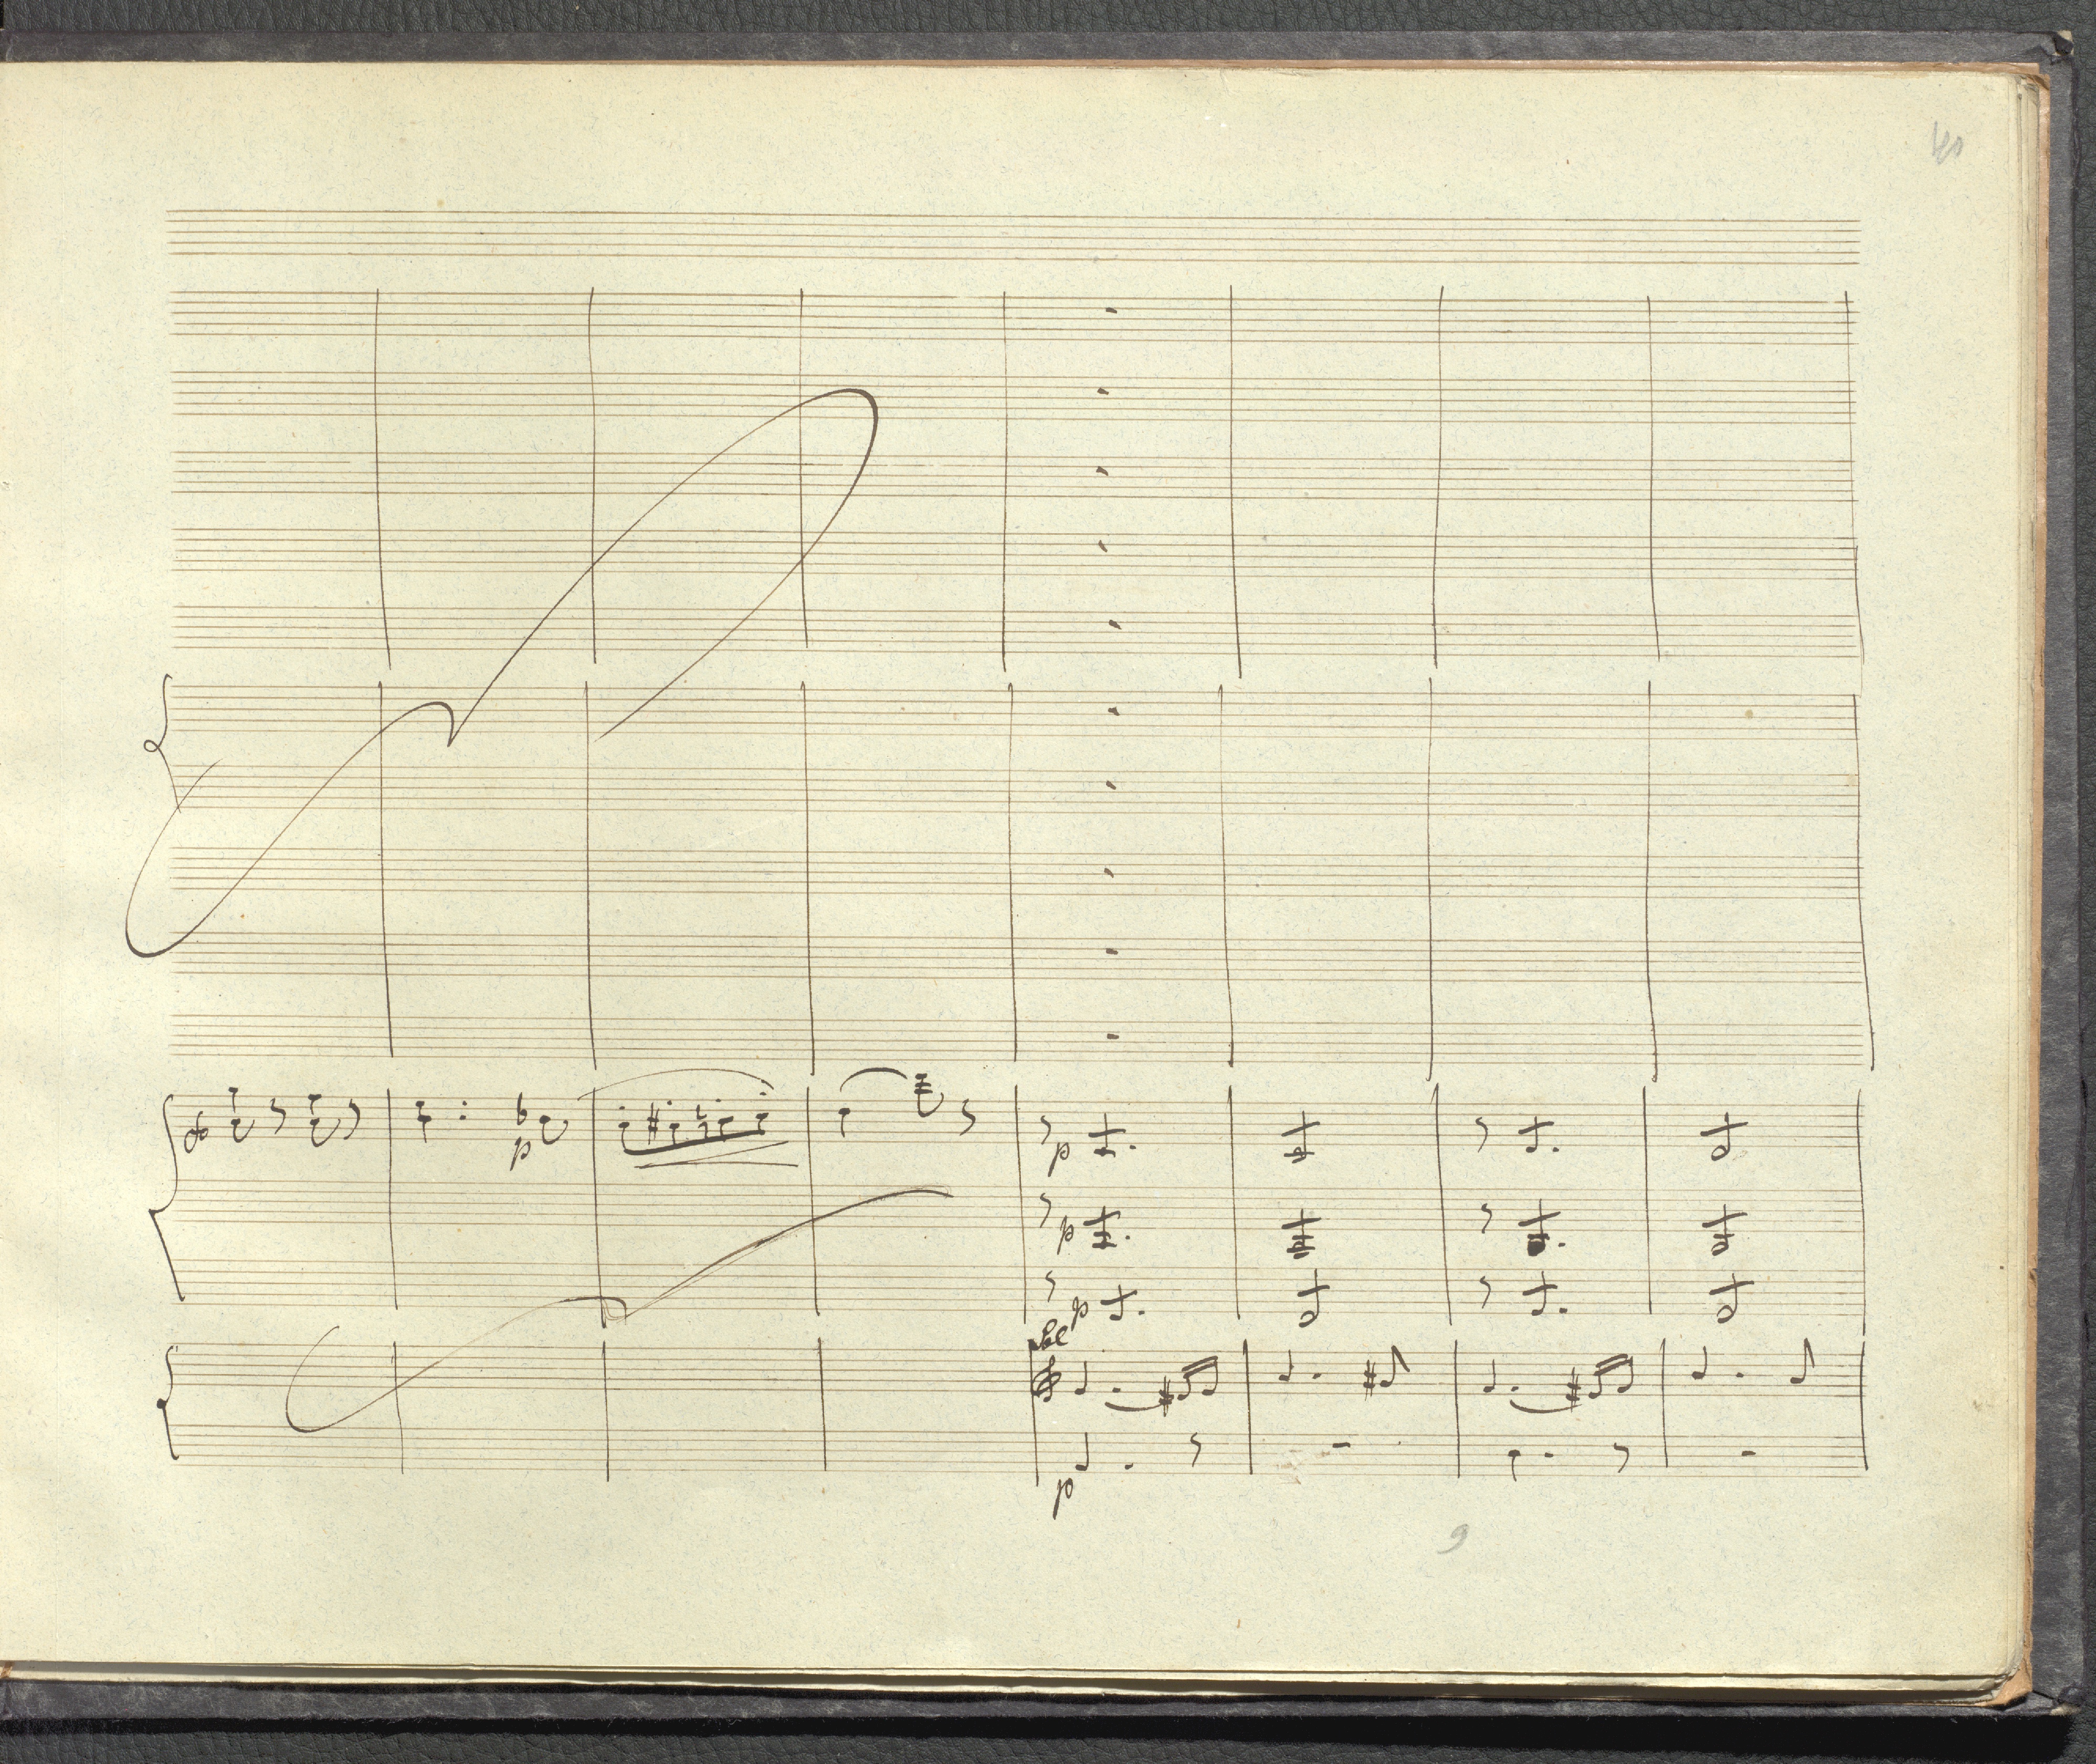 40
p
p
p
p
p
9